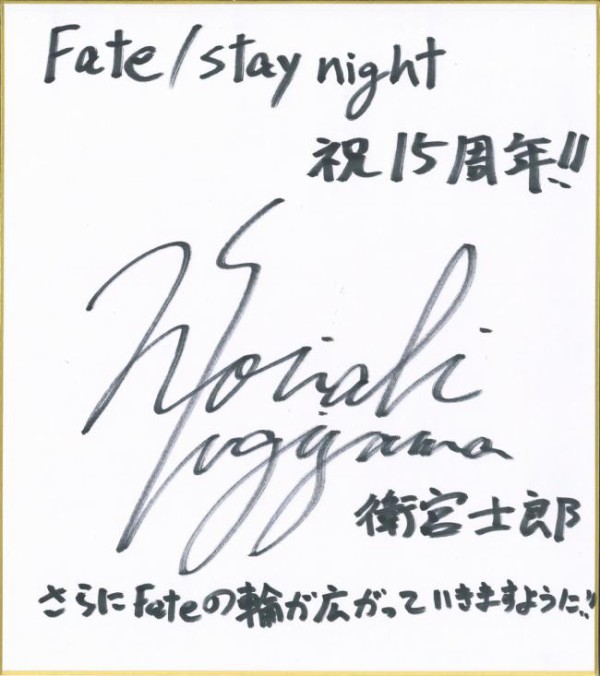 Fate/stay night
祝15周年!!
Noriaki
Sugiyama
衛宮士郎
さらにFateの輪が広がっていきますように!!